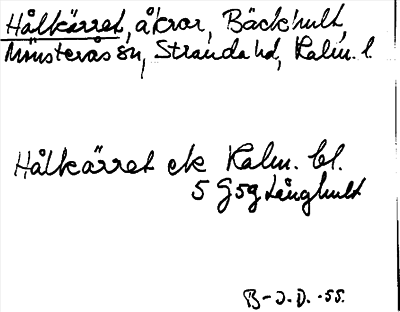 Hålkärret, åkrar, Bäckhult,
Mönsterås sn, Stranda hd, Kalm. l.
Hålkärret ek Kalm. bl.
5 G 5g Långhult
B-J.D. -55.